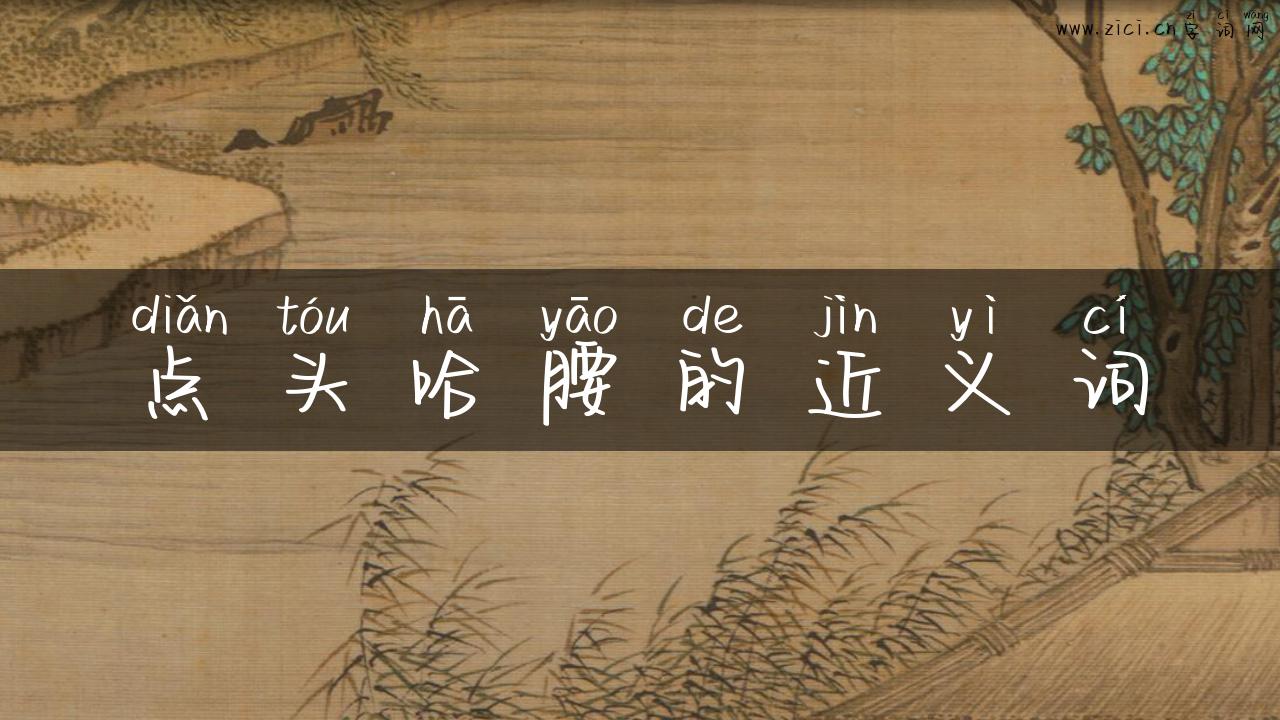 zì cí wǎng
www.zici.cn 字词网
diǎn tóu hā yāo de jìn yì cí
点头哈腰的近义词